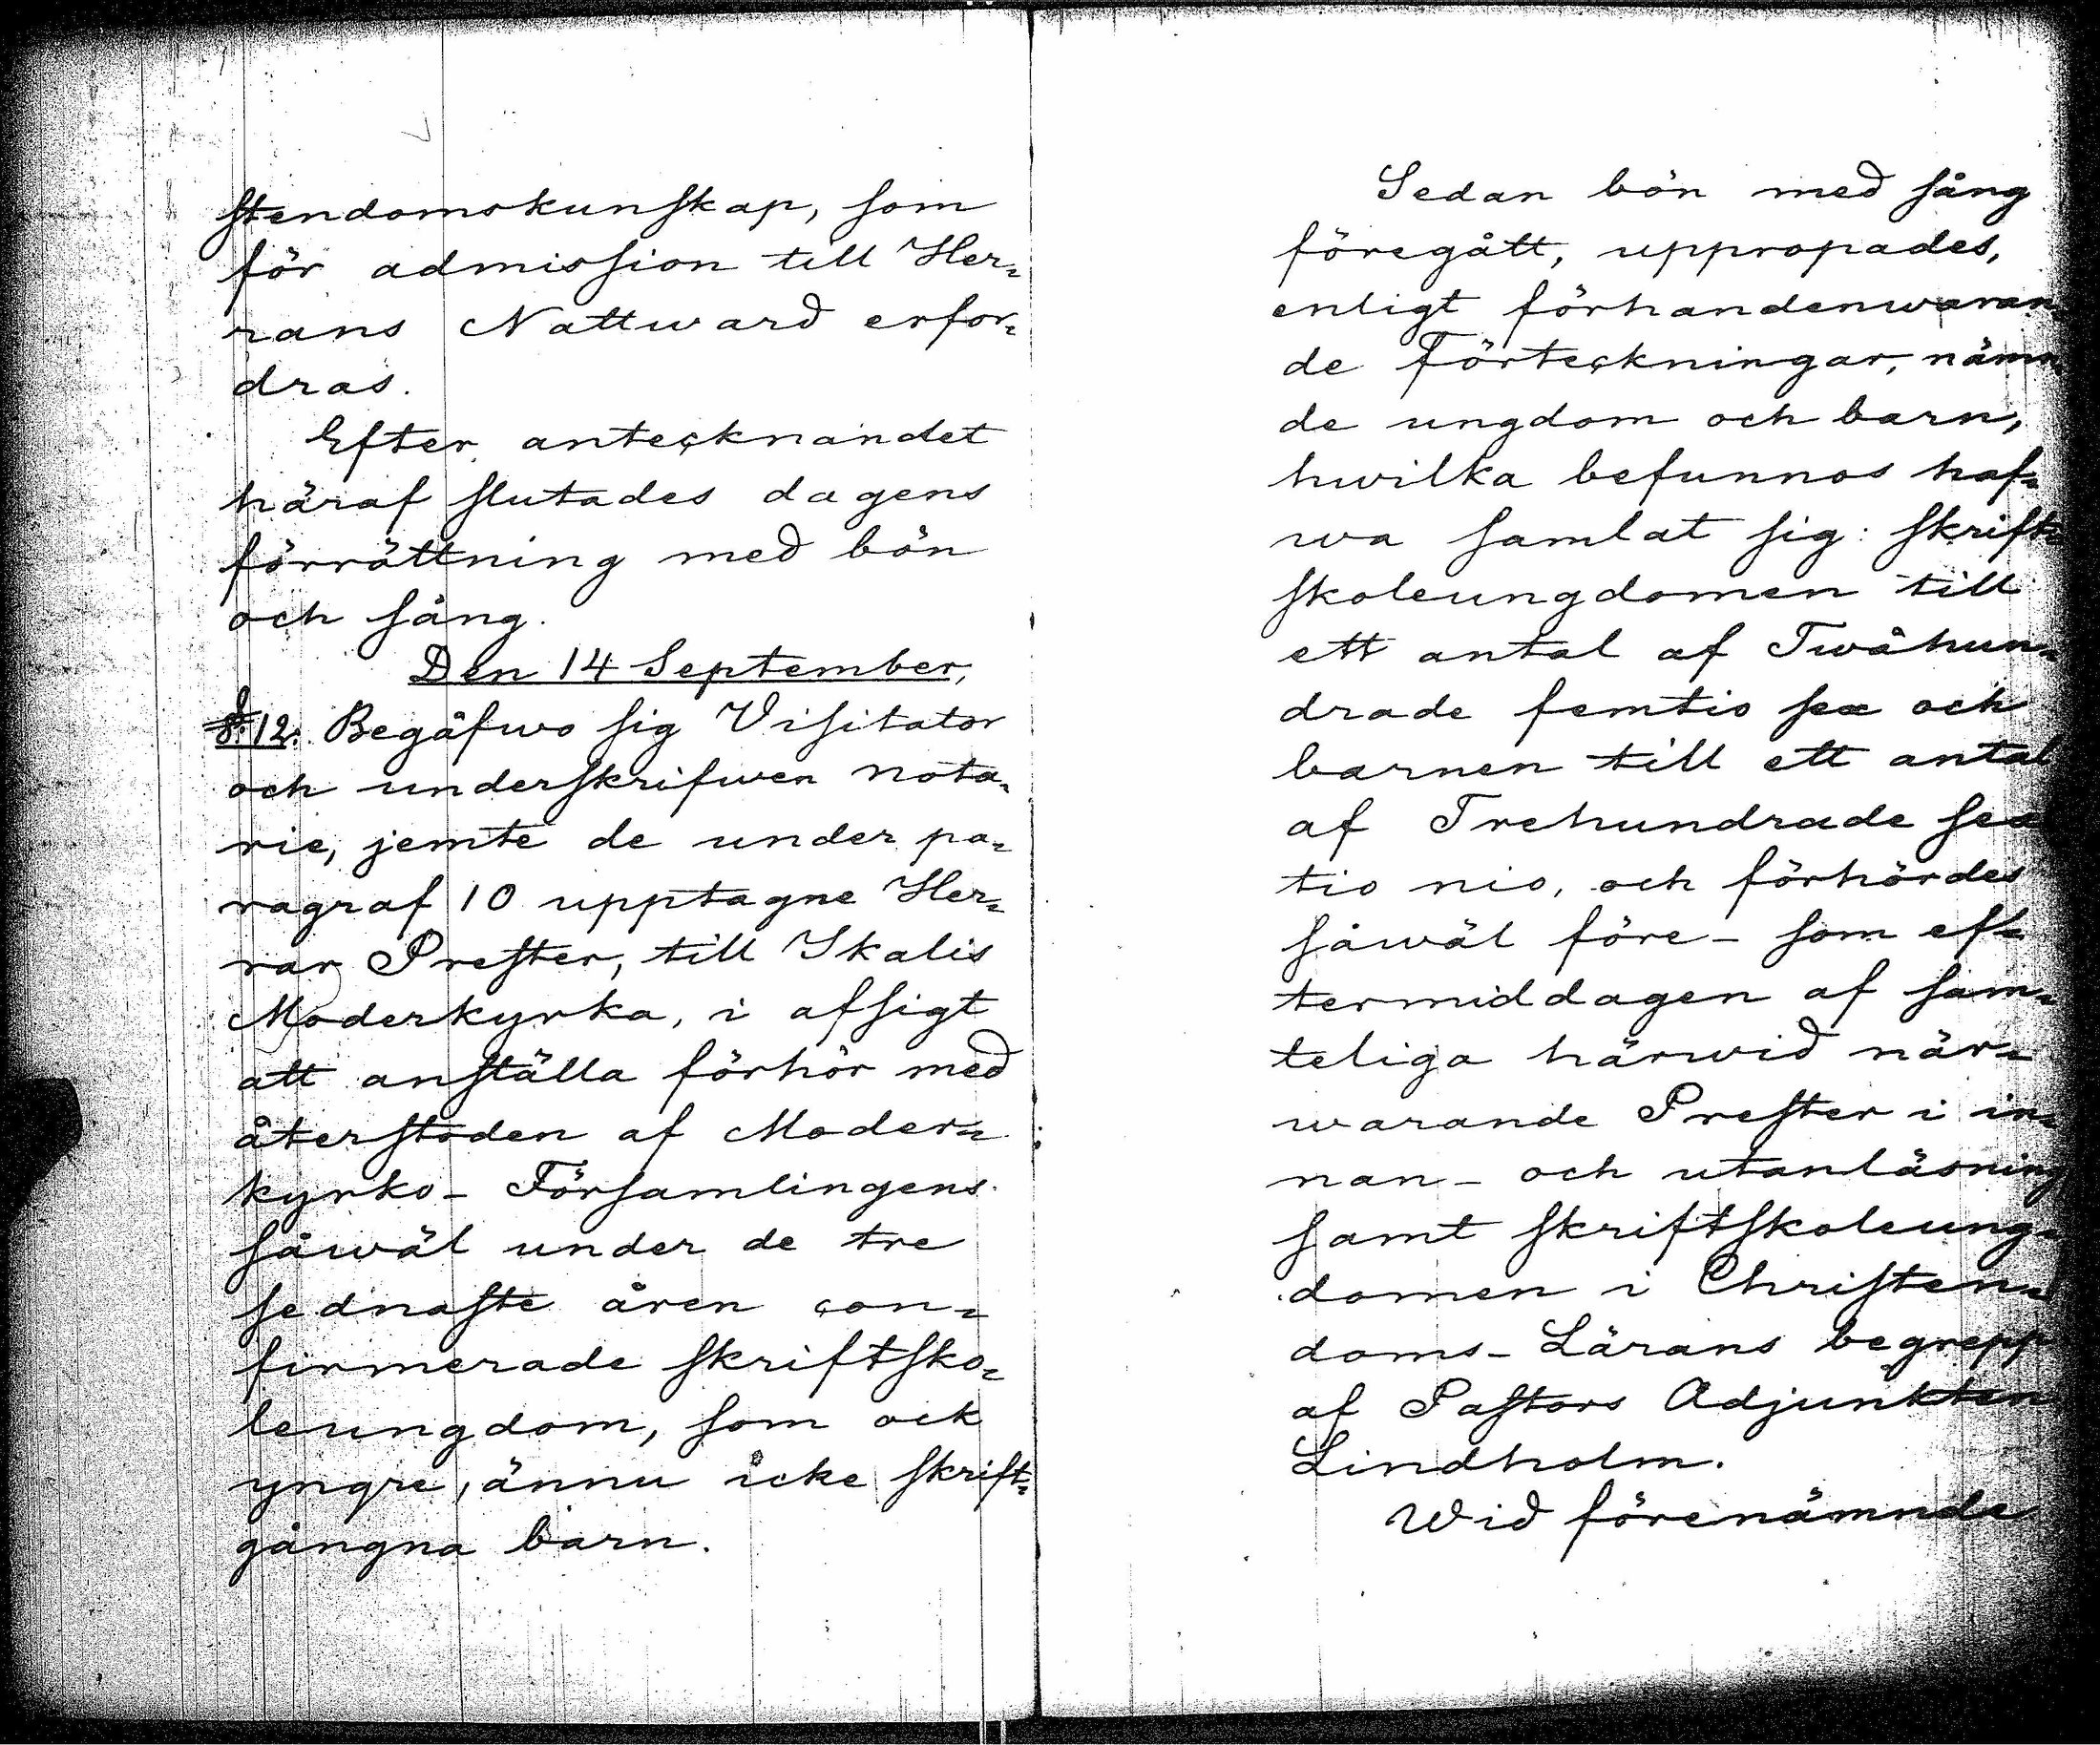 stendomskunskap, som
för admission till Her=
rans Nattward erfor=
dras.
Efter antecknandet
häraf slutades dagens
förrättning med bön
och sång.
Den 14 September,
§. 12. Begåfwo sig Visitator
och underskrifwen nota=
rie, jemte de under pa=
ragraf 10 upptagne Her=
rar Prester, till Ikalis
Moderkyrka, i afsigt
att anställa förhör med
återstoden af Moder=
kyrko- Församlingens
såwäl under de tre
sednaste åren con=
firmerade skriftsko=
leungdom, som ock
yngre, ännu icke skrift=
gångna barn.
Sedan bön med sång
föregått, uppropades,
enligt förhandenwaran=
de Förteckningar, nämn=
de ungdom och barn,
hwilka befunnos haf=
wa samlat sig: skrift=
skoleungdomen till
ett antal af Twåhun=
drade femtio sex och
barnen till ett antal
af Trehundrade sex
tio nio, och förhördes
såwäl före- som ef=
termiddagen af sam=
teliga härwid när=
warande Prester i in=
nan- och utanläsning
samt skriftskoleung=
domen i Christen=
doms- Lärans begrepp
af Pastors Adjunkten
Lindholm.
Wid förenämnde